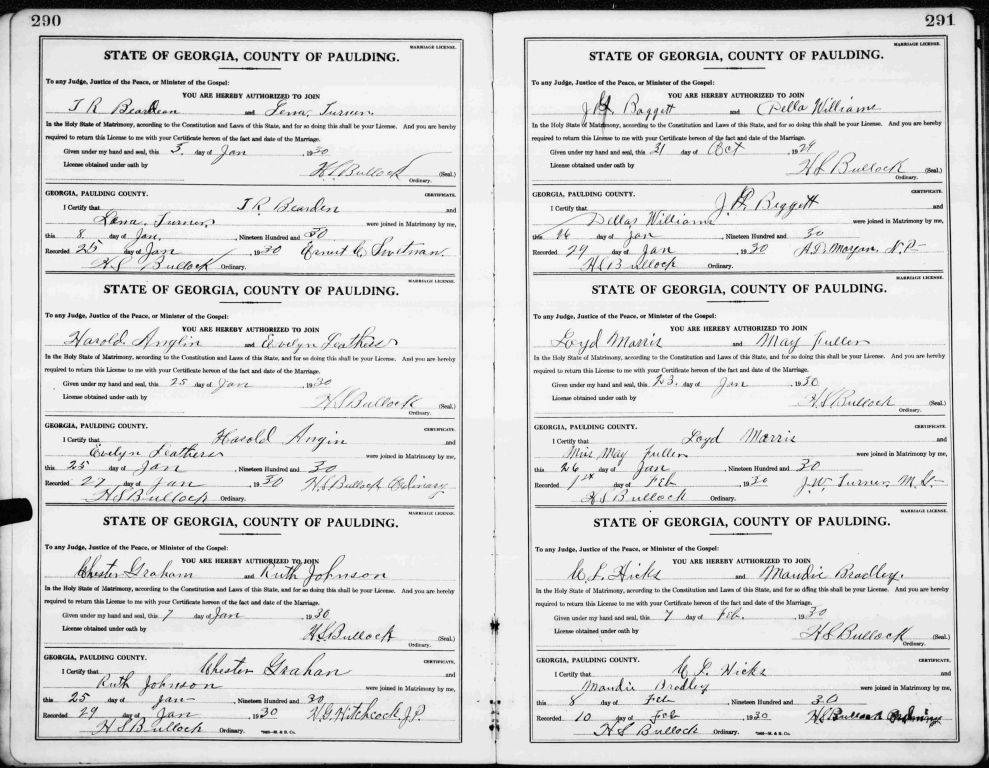 290
MARRIAGE LICENSE.
STATE OF GEORGIA, COUNTY OF PAULDING.
To any Judge, Justice of the Peace, or Minister of the Gospel:
YOU ARE HEREBY AUTHORIZED TO JOIN
T R Bearden and Lena Turner
In the Holy State of Matrimony, according to the Constitution and Laws of this State, and for so doing this shall be your License. And you are hereby
required to return this License to me with your Certificate hereon of the fact and date of the Marriage.
Given under my hand and seal, this 3. day of Jan , 1930
License obtained under oath by H.S Bullock (Seal.)
Ordinary.
GEORGIA, PAULDING COUNTY. CERTIFICATE.
I Certify that T R. Bearden and
Lena. Turner were joined in Matrimony by me,
this 8 day of Jan. , Nineteen Hundred and 30
Recorded 25 day of Jan , 1930 Ernest C.
H S Bullock Ordinary.
MARRIAGE LICENSE.
STATE OF GEORGIA, COUNTY OF PAULDING.
To any Judge, Justice of the Peace, or Minister of the Gospel:
YOU ARE HEREBY AUTHORIZED TO JOIN
Harold Anglin and Evelyn Leathers
In the Holy State of Matrimony, according to the Constitution and Laws of this State, and for so doing this shall be your License. And you are hereby
required to return this License to me with your Certificate hereof of the fact and date of the Marriage.
Given under my hand and seal, this 25 day of Jan , 1930
License obtained under oath by H S Bullock (Seal.)
Ordinary.
GEORGIA, PAULDING COUNTY. CERTIFICATE.
I Certify that Harold Angin and
Evelyn Leathers were joined in Matrimony by me,
this 25 day of Jan , Nineteen Hundred and 30
Recorded 27 day of Jan , 1930 H.S Bullock Ordinary
H S Bullock Ordinary.
MARRIAGE LICENSE.
STATE OF GEORGIA, COUNTY OF PAULDING.
To any Judge, Justice of the Peace, or Minister of the Gospel:
YOU ARE HEREBY AUTHORIZED TO JOIN
Chester Graham and Ruth Johnson
In the Holy State of Matrimony, according to the Constitution and Laws of this State, and for so doing this shall be your License. And you are hereby
required to return this License to me with your Certificate hereon of the fact and date of the Marriage.
Given under my hand and seal, this 7 day of Jan , 1930
License obtained under oath by H S Bullock (Seal.)
Ordinary.
GEORGIA, PAULDING COUNTY. CERTIFICATE.
I Certify that Chester Grahan and
Ruth Johnson were joined in Matrimony by me,
this 25 day of Jan , Nineteen Hundred and 30
Recorded 29 day of Jan , 1930 Hitchcock J.P.
H S Bullock Ordinary.
291
MARRIAGE LICENSE.
STATE OF GEORGIA, COUNTY OF PAULDING.
To any Judge, Justice of the Peace, or Minister of the Gospel:
YOU ARE HEREBY AUTHORIZED TO JOIN
Baggett and Della Williams
In the Holy State of Matrimony, according to the Constitution and Laws of this State, and for so doing this shall be your License. And you are hereby
required to return this License to me with your Certificate hereon of the fact and date of the Marriage.
Given under my hand and seal, this 31 day of Oct , 1929
License obtained under oath by H S Bullock (Seal.)
Ordinary.
GEORGIA, PAULDING COUNTY. CERTIFICATE.
I Certify that Beggett and
Dellas Williams were joined in Matrimony by me,
this 16 day of Jan , Nineteen Hundred and 30
Recorded 29 day of Jan , 1930 Morgan, N.P.
H S Bullock Ordinary.
MARRIAGE LICENSE.
STATE OF GEORGIA, COUNTY OF PAULDING.
To any Judge, Justice of the Peace, or Minister of the Gospel:
YOU ARE HEREBY AUTHORIZED TO JOIN
Loyd Morris and May Fuller
In the Holy State of Matrimony, according to the Constitution and Laws of this State, and for so doing this shall be your License. And you are hereby
required to return this License to me with your Certificate hereon of the fact and date of the Marriage.
Given under my hand and seal, this 23. day of Jan , 1930
License obtained under oath by H S Bullock (Seal.)
Ordinary.
GEORGIA, PAULDING COUNTY. CERTIFICATE.
I Certify that Loyd Morris and
Miss May Fuller were joined in Matrimony by me,
this 26 day of Jan , Nineteen Hundred and 30
Recorded 1st day of Feb , 1930 J.W. Turner, M.G.
H S Bullock Ordinary.
MARRIAGE LICENSE.
STATE OF GEORGIA, COUNTY OF PAULDING.
To any Judge, Justice of the Peace, or Minister of the Gospel:
YOU ARE HEREBY AUTHORIZED TO JOIN
C. L. Hicks and Maudie Bradley.
In the Holy State of Matrimony, according to the Constitution and Laws of this State, and for so doing this shall be your License. And you are hereby
required to return this License to me with your Certificate hereon of the fact and date of the Marriage.
Given under my hand and seal, this 7 day of Feb. , 1930
License obtained under oath by H S Bullock (Seal.)
Ordinary.
GEORGIA, PAULDING COUNTY. CERTIFICATE.
I Certify that C L Hicks and
Maudie Bradley were joined in Matrimony by me,
this 8 day of Feb , Nineteen Hundred and 30
Recorded 10 day of Feb , 1930 H S Bullock Ordinary
H S Bullock Ordinary.